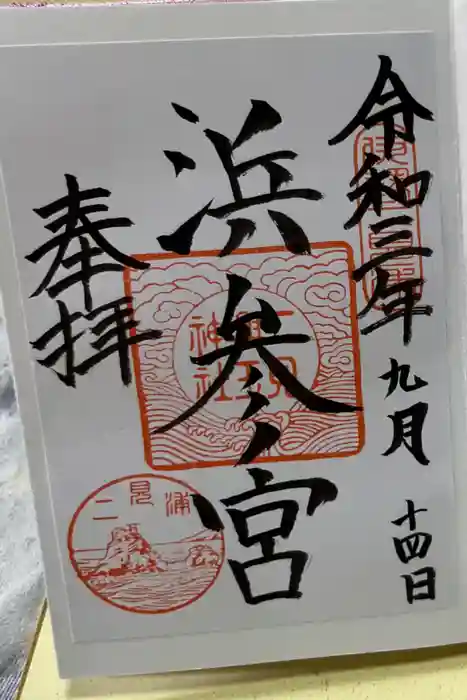 令和三年九月十四日
浜参宮
奉拝
二見
興玉
神社
二見浦